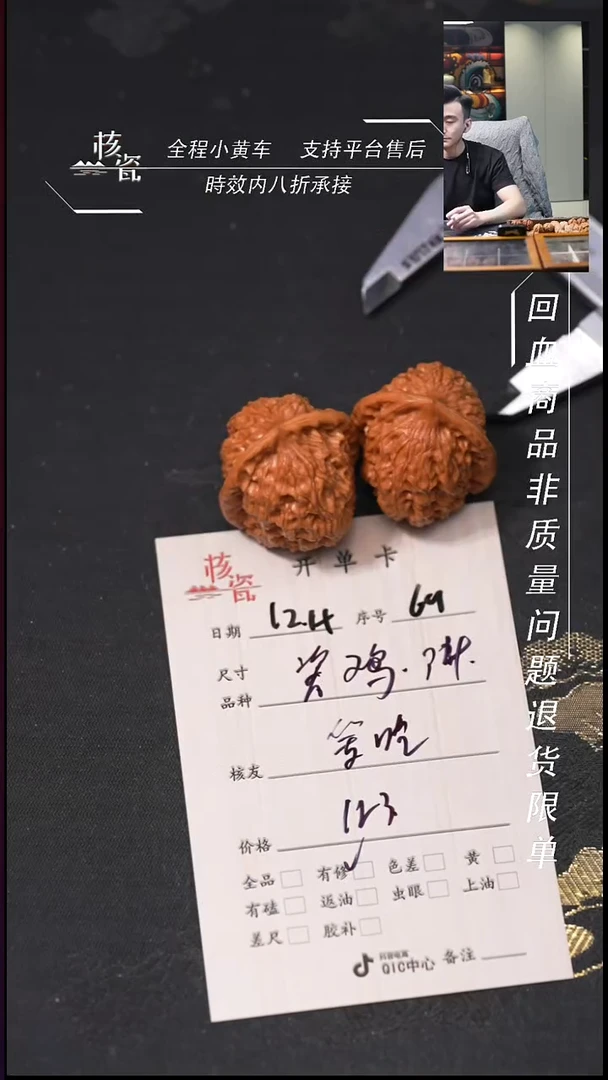 核瓷
全程小黄车 支持平台售后
時效内八折承接
回血商品非质量问题退货限单
核瓷 开单卡
日期 12.4 序号 69
尺寸
品种
核友
价格 123
全品 有修 色差 黄
有磕 返油 虫眼 上油
差尺 胶补
抖音电商
QIC中心 备注